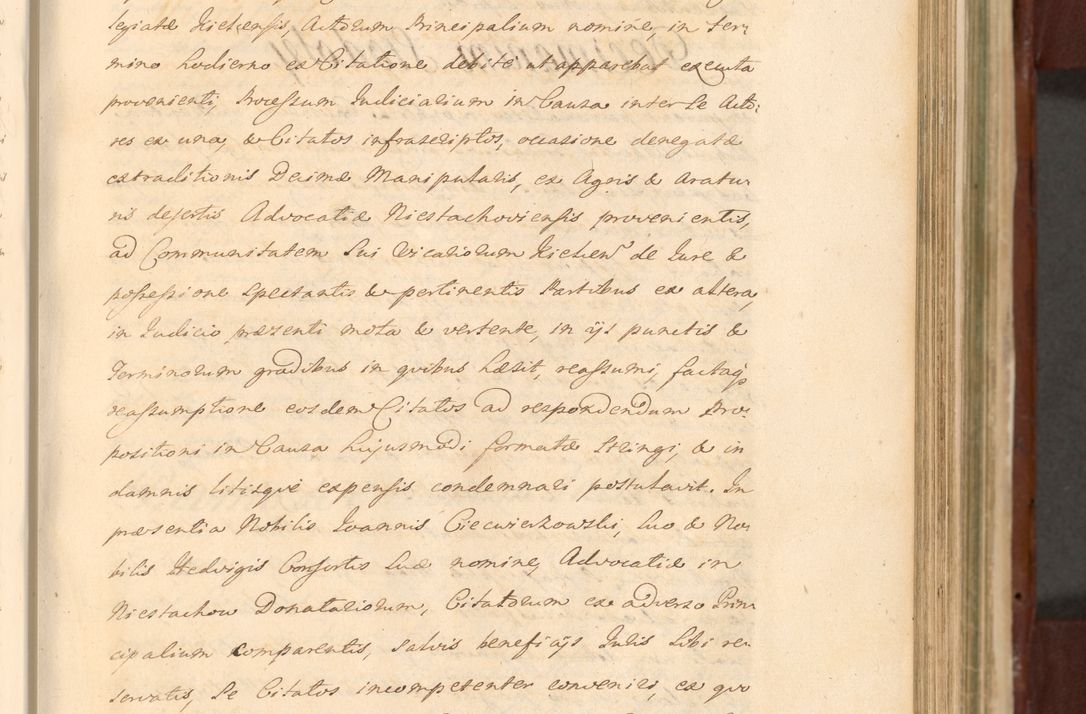 legiatæ Kielcensis, Actorum Principalium nomine, in Ter-
mino hodierno ex Citatione debite ut apparebat executa
provenienti, Processum Judiciarium in Causa inter Se Acto-
res ex una, & Citatos infrascriptos, occasione denegatæ
extraditionis Decimæ Manipularis, ex Agris & Aratu-
ris desertis Advocatiæ Niestachoviensis provenientis,
ad Communitatem Sui Vicariorum Kielcen. de Jure &
possessione Spectantis & pertinentis Partibus ex altera,
in Judicio præsenti mota & vertente, in ijs punctis &
Terminorum gradibus in quibus hæsit, reassumi, factaq.
reassumptione eosdem Citatos ad respondendum Pro-
positioni in Causa hujusmodi formatæ Stringi, & in
damnis litisque expensis condemnari postulavit. In
præsentia Nobilis Joannis Cieċwierzowski, Suo & No-
bilis Hedvigis Consortis Suæ nomine, Advocatiæ in
Niestachow Donatariorum, Citatorum ex adverso Prin-
cipalium comparentis, Salvis beneficijs Juris Sibi re-
servatis, Se Citatos incompetenter conveniri, ex quo